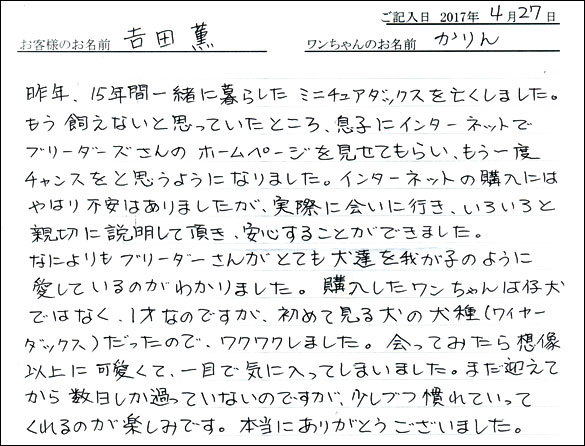 ご記入日 2017年 4月27日
お客様のお名前 吉田 薫 ワンちゃんのお名前 かりん
昨年、15年間一緒に暮らした ミニチュアダックスを亡くしました。
もう 飼えないと思っていたところ、息子にインターネットで
ブリーダーズさんの ホームページを見せてもらい、もう一度
チャンスをと思うようになりました。インターネットの購入には
やはり不安はありましたが、実際に会いに行き、いろいろと
親切に説明して頂き、安心することができました。
なによりも ブリーダーさんがとても 犬達を我が子のように
愛しているのがわかりました。購入したワンちゃんは仔犬
ではなく、1才なのですが、初めて見る犬の犬種(ワイヤー
ダックス)だったので、ワクワクしました。会ってみたら想像
以上に可愛くて、一目で気に入ってしまいました。まだ迎えて
から 数日しか過っていないのですが、少しづつ慣れていって
くれるのが楽しみです。本当にありがとうございました。